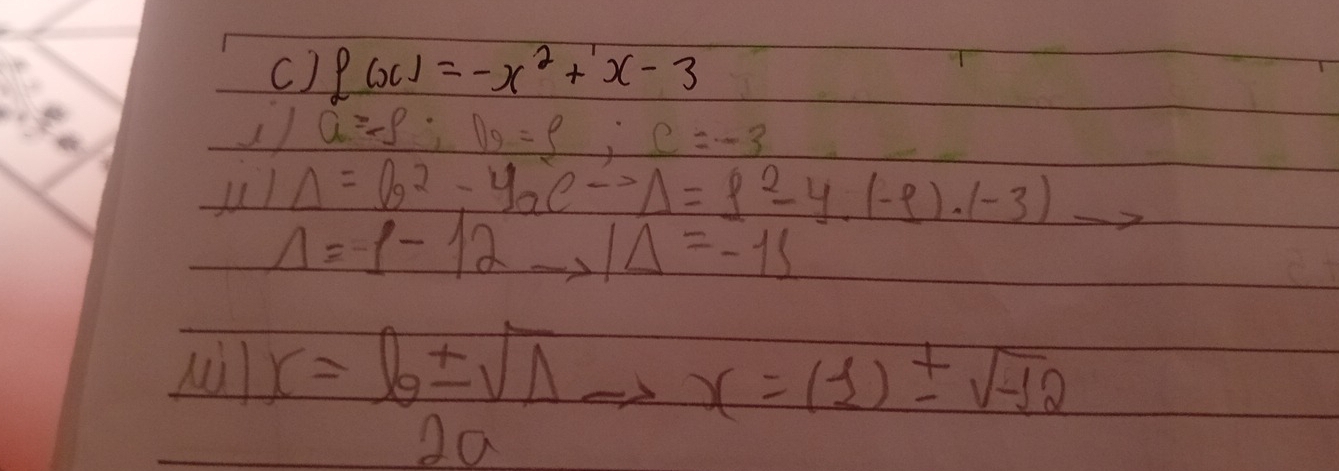 c) f(x) = -x² + x - 3
i) a = -1 ; b = 1 ; c = -3
ii) Δ = b² - 4ac -> Δ = 1² - 4 . (-1) . (-3) ->
Δ = 1 - 12 -> Δ = -11
iii) x = b ± √Δ -> x = (1) ± √-12
2a